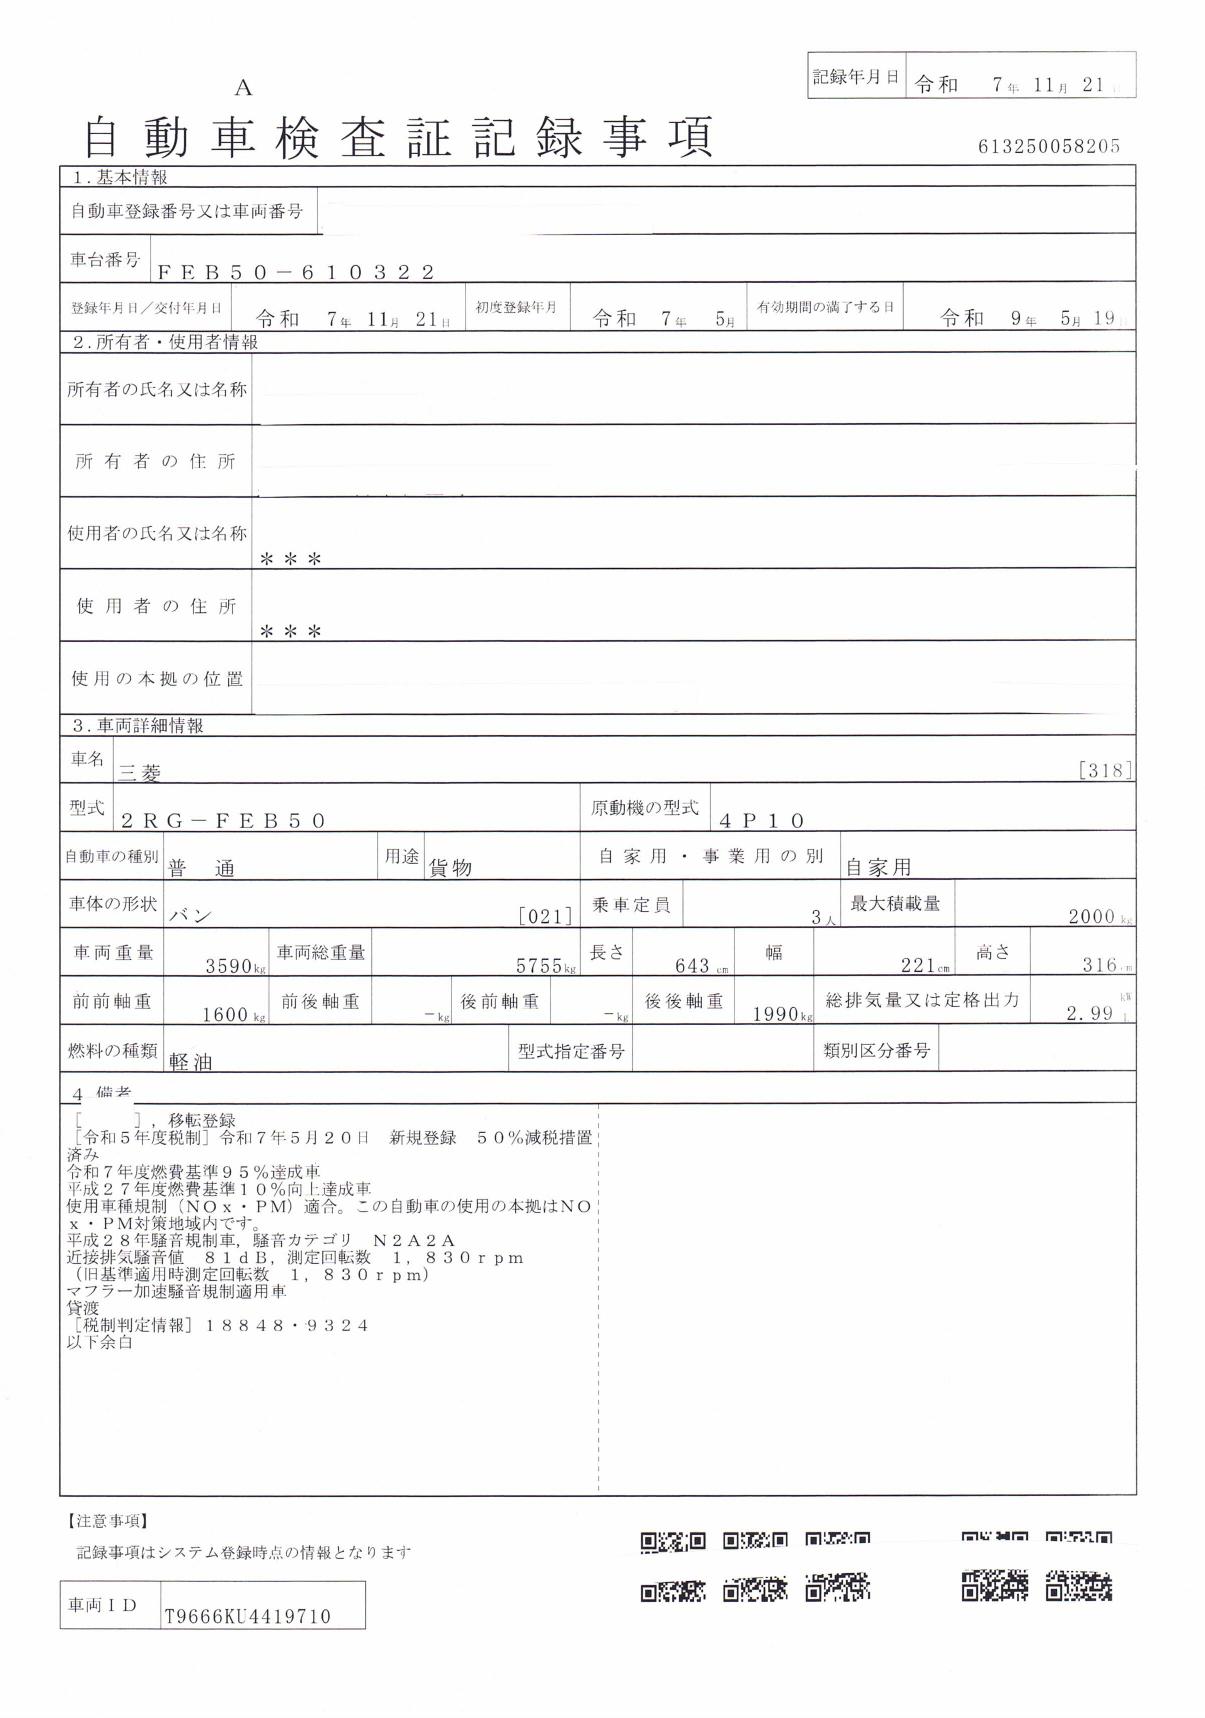 A
記録年月日 令和 7年 11月 21
自動車検査証記録事項
613250058205
1.基本情報
自動車登録番号又は車両番号
車台番号 FEB50-610322
登録年月日／交付年月日 令和 7年 11月 21日 初度登録年月 令和 7年 5月 有効期間の満了する日 令和 9年 5月 19日
2.所有者・使用者情報
所有者の氏名又は名称
所有者の住所
使用者の氏名又は名称 ＊＊＊
使用者の住所 ＊＊＊
使用の本拠の位置
3.車両詳細情報
車名 三菱 [318]
型式 2RG-FEB50 原動機の型式 4P10
自動車の種別 普通 用途 貨物 自家用・事業用の別 自家用
車体の形状 バン [021] 乗車定員 3人 最大積載量 2000kg
車両重量 3590kg 車両総重量 5755kg 長さ 643cm 幅 221cm 高さ 316cm
前前軸重 1600kg 前後軸重 -kg 後前軸重 -kg 後後軸重 1990kg 総排気量又は定格出力 2.99 kW L
燃料の種類 軽油 型式指定番号 類別区分番号
4 備考
[ ]，移転登録
［令和5年度税制］令和7年5月20日 新規登録 50％減税措置
済み
令和7年度燃費基準95％達成車
平成27年度燃費基準10％向上達成車
使用車種規制（NOx・PM）適合。この自動車の使用の本拠はNO
x・PM対策地域内です。
平成28年騒音規制車，騒音カテゴリ N2A2A
近接排気騒音値 81dB，測定回転数 1，830rpm
（旧基準適用時測定回転数 1，830rpm）
マフラー加速騒音規制適用車
貸渡
［税制判定情報］18848・9324
以下余白
【注意事項】
記録事項はシステム登録時点の情報となります
車両ID T9666KU4419710